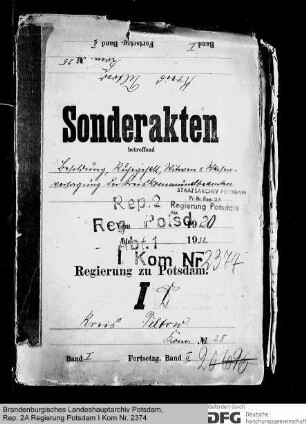 Band I
Fortsetzg. Band II
Kom. № 25
Kreis Teltow
Sonderakten
betreffend
Besoldung, Ruhegehalt, Witwen & Waisen-
versorgung der Kreiskommunalbeamten
STAATSARCHIV POTSDAM
Pr. Br. Rep. 2A
Regierung Potsdam
Rep. 2
Reg. Potsd.
1920
Abt. I
1932
I Kom Nr 2374
Regierung zu Potsdam.
I
Kreis Teltow
Kom. № 25
Band I
Fortsetzg. Band II
Brandenburgisches Landeshauptarchiv Potsdam,
Rep. 2A Regierung Potsdam I Kom Nr. 2374
Gefördert durch
DFG Deutsche
Forschungsgemeinschaft